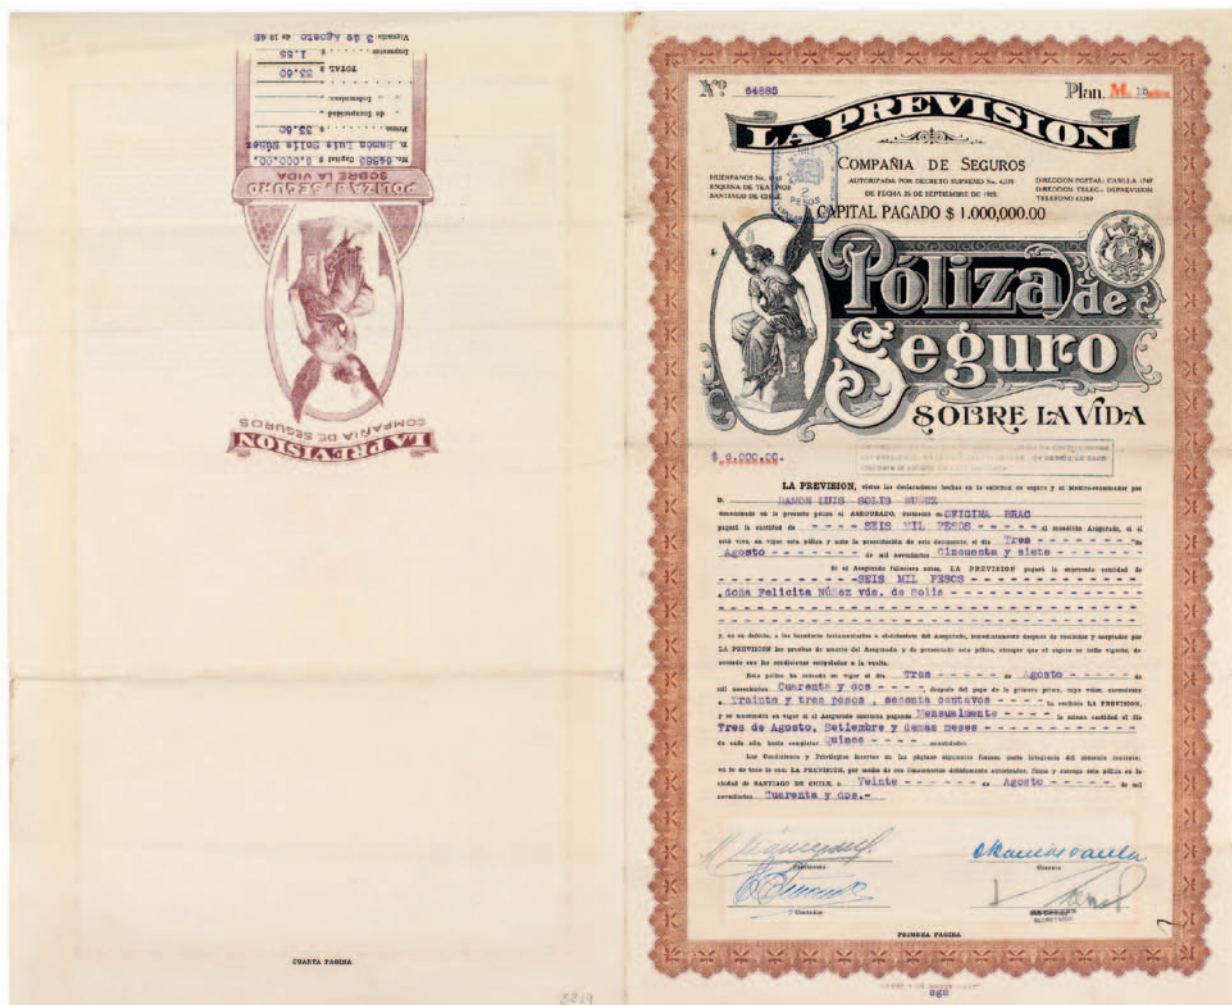 Vigencia: 3 de Agosto de 19 42
Impuestos $ 1.55
TOTAL $ 33.60
" " Indemnizac. "
" de Incapacidad "
Prima $ 33.60
D. Ramon Luis Solis Núñez
No. 64885 Capital $ 6.000.00.
POLIZA DE SEGURO
SOBRE LA VIDA
COMPAÑIA DE SEGUROS
LA PREVISION
CUARTA PAGINA
3219
Nº 64885
Plan. M. 15
LA PREVISION
COMPAÑIA DE SEGUROS
HUERFANOS No.
ESQUINA DE TEATINOS
SANTIAGO DE CHILE
AUTORIZADA POR DECRETO SUPREMO No.
DE FECHA 26 DE SEPTIEMBRE DE
DIRECCION POSTAL: CASILLA
DIRECCION TELEG.: DEPREVISION
TELEFONO
2
PESOS
CAPITAL PAGADO $ 1.000,000.00
Póliza de
Seguro
SOBRE LA VIDA
$ 6.000.00.
LA PREVISION, vistas las declaraciones hechas en la solicitud de seguro y al Médico-examinador por
D. RAMON LUIS SOLIS NUÑEZ
denominado en la presente póliza el ASEGURADO, residente en OFICINA BRAC
pagará la cantidad de - - - - SEIS MIL PESOS - - - - - al susodicho Asegurado, si él
está vivo, en vigor esta póliza y ante la presentación de este documento, el día Tres - - - - - - - - de
Agosto - - - - - - - de mil novecientos Cincuenta y siete - - - - - - -
Si el Asegurado falleciera antes, LA PREVISION pagará la expresada cantidad de
- - - - - - - - - - - -SEIS MIL PESOS - - - - - - - - - - - - - -
a doña Felicita Núñez vda. de Solis - - - - - - - - - - - - - - -
y, en su defecto, a los herederos testamentarios o ab-intestato del Asegurado, inmediatamente después de recibidas y aceptadas por
LA PREVISION las pruebas de muerte del Asegurado y de presentada esta póliza, siempre que el seguro se halle vigente, de
acuerdo con las condiciones estipuladas a la vuelta.
Esta póliza ha entrado en vigor el día Tres - - - - - de Agosto - - - - - de
mil novecientos Cuarenta y dos - - - -, después del pago de la primera prima, cuyo valor, ascendente
a Treinta y tres pesos , sesenta centavos - - - - ha recibido LA PREVISION,
y se mantendrá en vigor si el Asegurado continúa pagando Mensualmente - - - - la misma cantidad el día
Tres de Agosto, Setiembre y demas meses - - - - - - - - - - - -
de cada año, hasta completar Quince - - - - anualidades.
Las Condiciones y Privilegios insertos en las páginas siguientes forman parte integrante del presente contrato;
en fe de todo lo cual LA PREVISION, por medio de sus funcionarios debidamente autorizados, firma y entrega esta póliza en la
ciudad de SANTIAGO DE CHILE, a Veinte - - - - - - de Agosto - - - - de mil
novecientos Cuarenta y dos.-
Presidente
Gerente
Contador
SECRETARIO
PRIMERA PAGINA